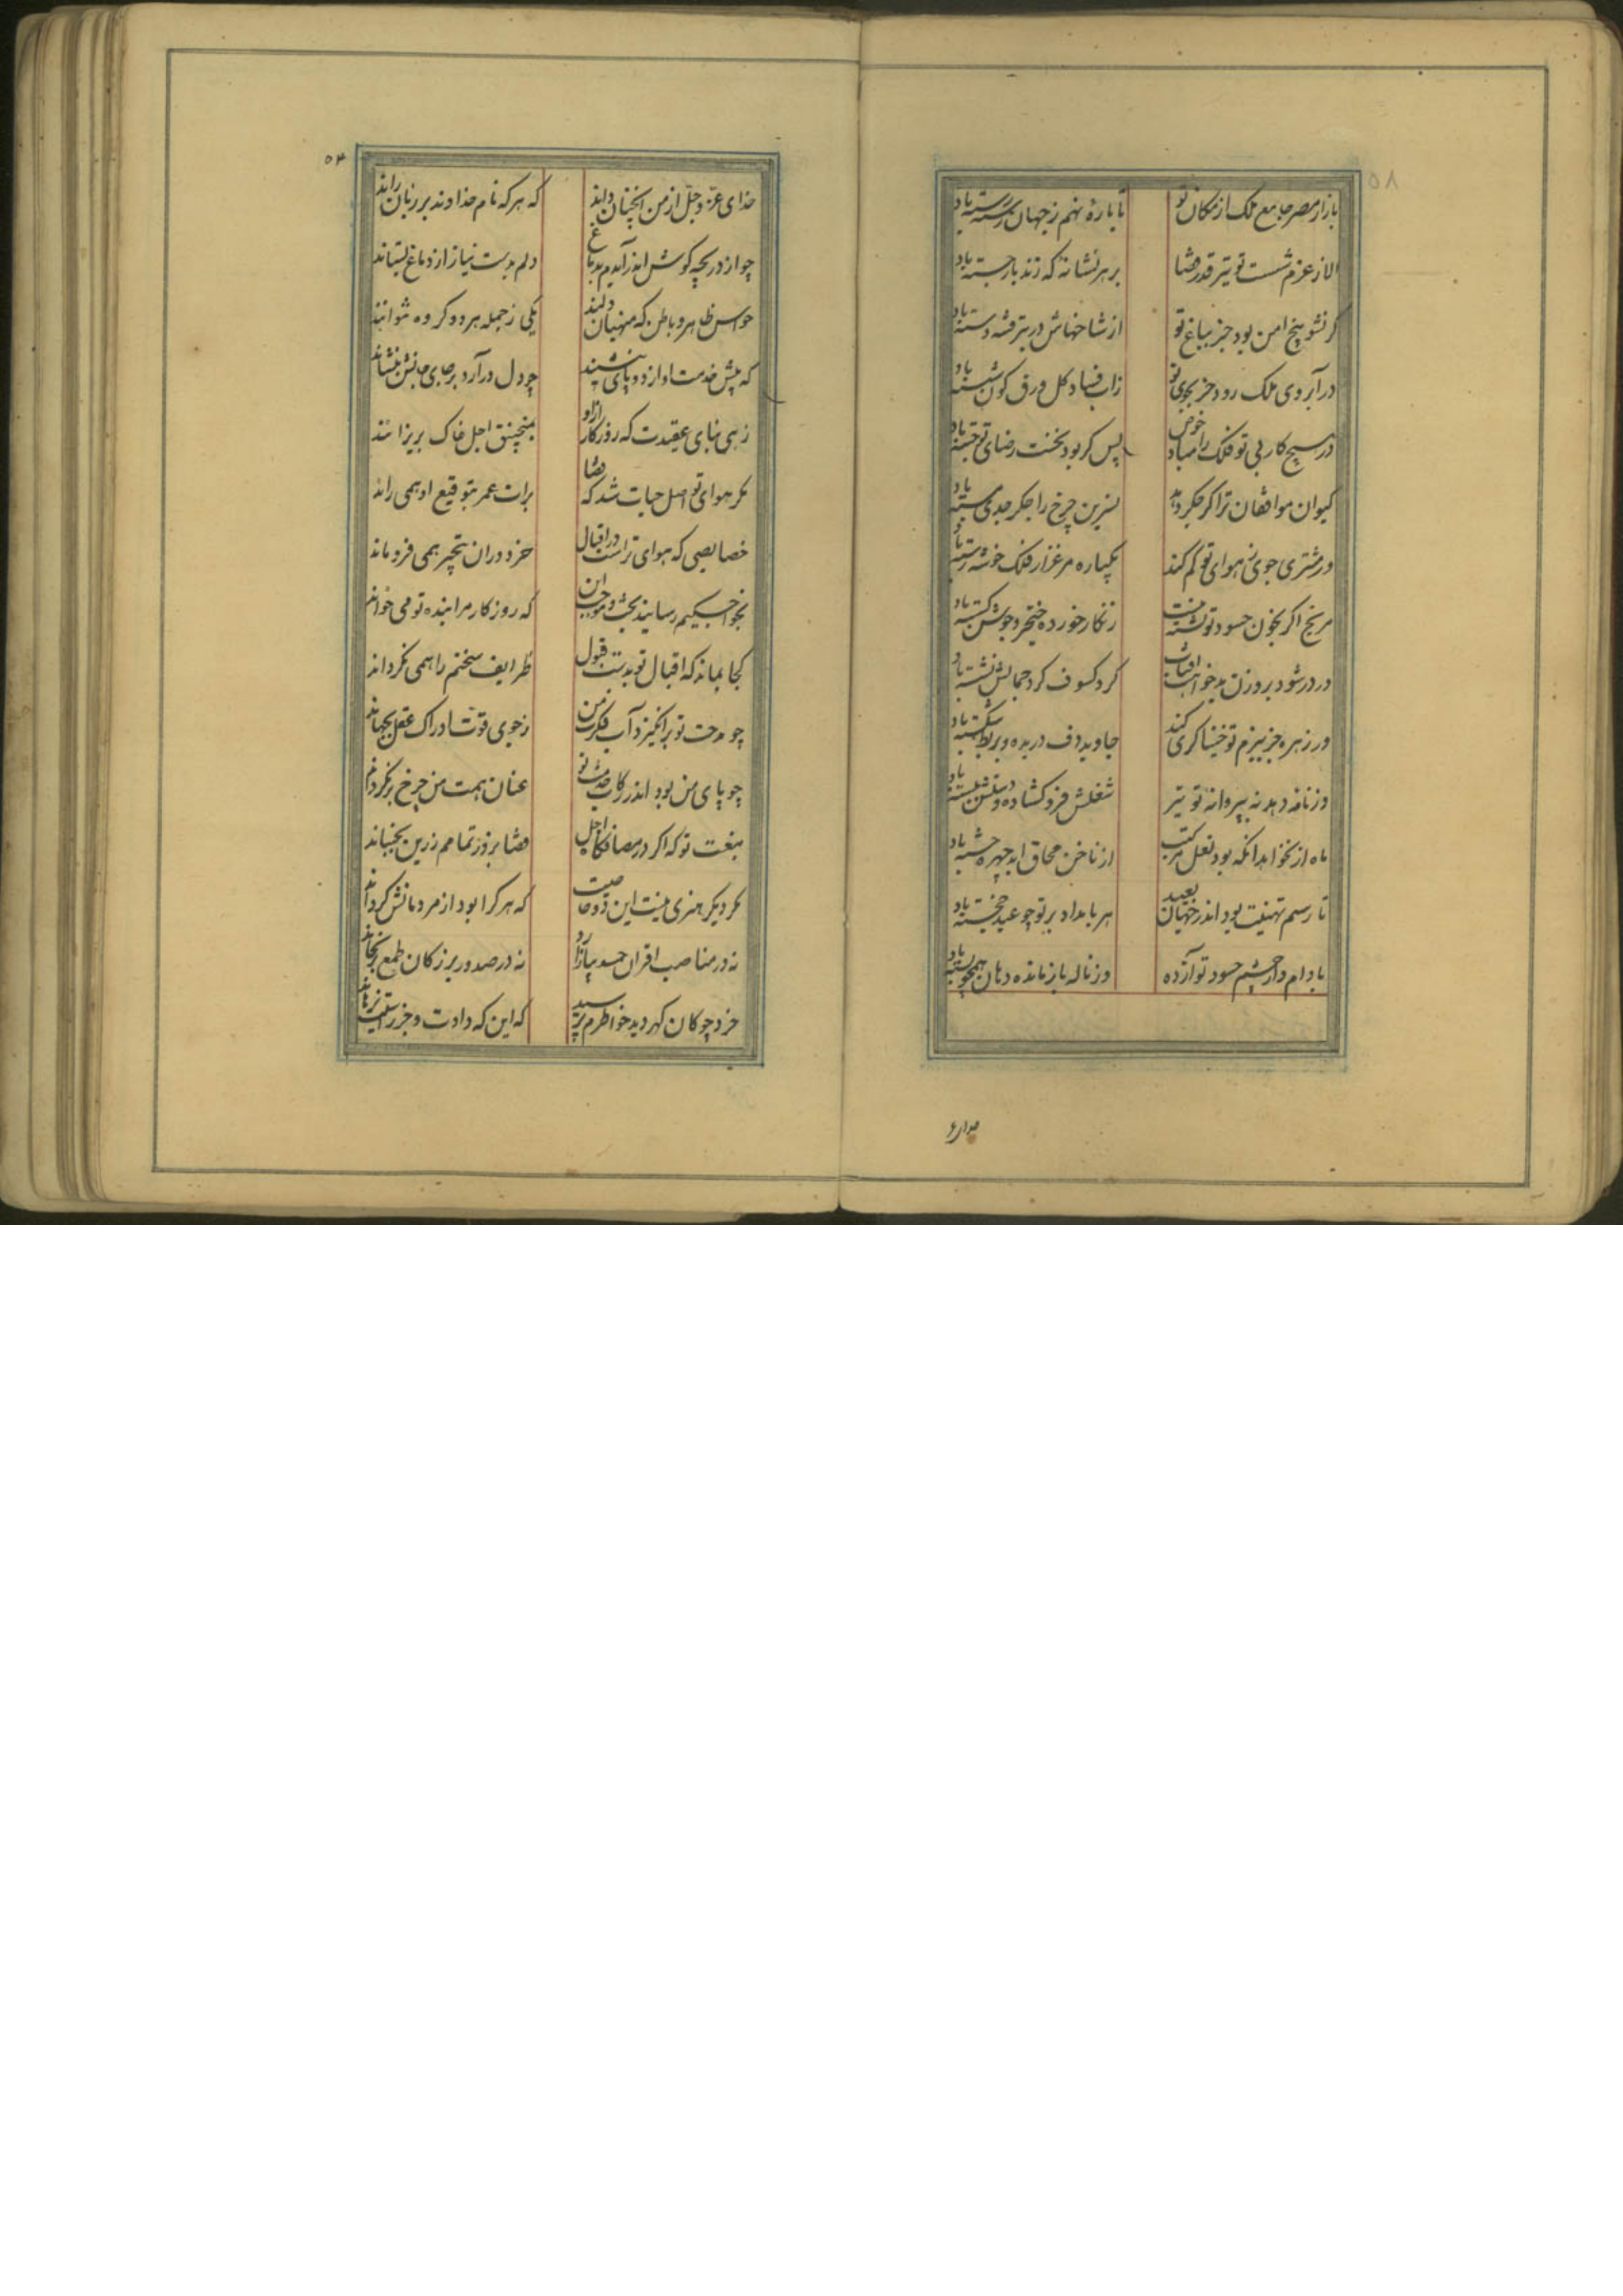 بازار مصر جامع ملک از مکان تو تا باره نهم ز جهان رسته رسته باد
الا ز عزم شست تو تیر قدر قضا بر هر نشانه که زند باز جسته باد
گر نشو بیخ امن بود جز بباغ تو از شاخهاش در تبر فتنه دسته باد
در آبروی ملک رود جز بجوی تو زاب فساد کل ورق کون شسته باد
در هیچ کار بی تو فلک را مباد خوض پس گر بود نخست رضای تو جسته باد
کیوان موافقان ترا گر جگر دهد نسرین چرخ را جگر جدی مسته باد
ور مشتری جوی ز هوای تو کم کند یکباره مرغزار فلک خوشه رسته باد
مریخ اگر بخون حسود تو تشنه نیست زنگار خورده خنجر و جوشن گسسته باد
ور در شود بروزن بدخواهت آفتاب گرد کسوف گرد جمالش نشسته باد
ور زهره جز ببزم تو خنیاگری کند جاوید دف دریده و بربط شکسته باد
ور نامه دهد نه بپروانه تو تیر شغلش فرو گشاده و دستش ببسته باد
ماه ار نخواهد آنکه بود نعل مرکبت از ناخن محاق ابد چهره خسته باد
تا رسم تهنیت بود اندر جهان بعید هر بامداد بر تو چو عید خجسته باد
بادام دار چشم حسود تو آژده وز ناله باز مانده دهان همچو پسته باد
خدای
۵۸
۵۴
خدای عز و جل از من آنچنان داند که هر که نام خداوند بر زبان راند
چو از دریچه گوش اندر آیدم بدماغ دلم بدست نیاز از دماغ بستاند
حواس ظاهر و باطن که منهیان دلند یکی ز جمله هر دو گروه نتوانند
که پیش خدمت او از دو پای بنشینند چو دل درآرد بر جای جانش بنشاند
زهی بنای عقیدت که روزگار ازو بمنجنیق اجل خاک بر نیزاند
مگر هوای تو اصل حیات شد که قضا برات عمر بتوقیع او همی راند
خصایصی که هوای تراست در اقبال خرد در ان بتحیر همی فرو ماند
بخواجگیم رسانید بخت و موجب آن که روزگار مرا بنده تو می خواند
کجا بماند که اقبال تو بدست قبول ظرایف سخنم را همی نگرداند
چو مدحت تو برانگیزد آب فکرت من ز جوی قوت ادراک عقل بجهاند
چو پای من بود اندر رکاب خدمت تو عنان همت من چرخ برنگرداند
بنعت تو که اگر در مصاف گاه اجل قضا بروز تمامم ز زین بجنباند
مگر دیگر هنری نیست این دو خاصیت که هر کرا بود از مردمانش گرداند
نه در مناصب اقران حسد بیازارد نه در صدور بزرگان طمع برنجاند
خرد چو کان گهر دید خاطرم پرسید که این که دادت و جز راستیت نرهاند